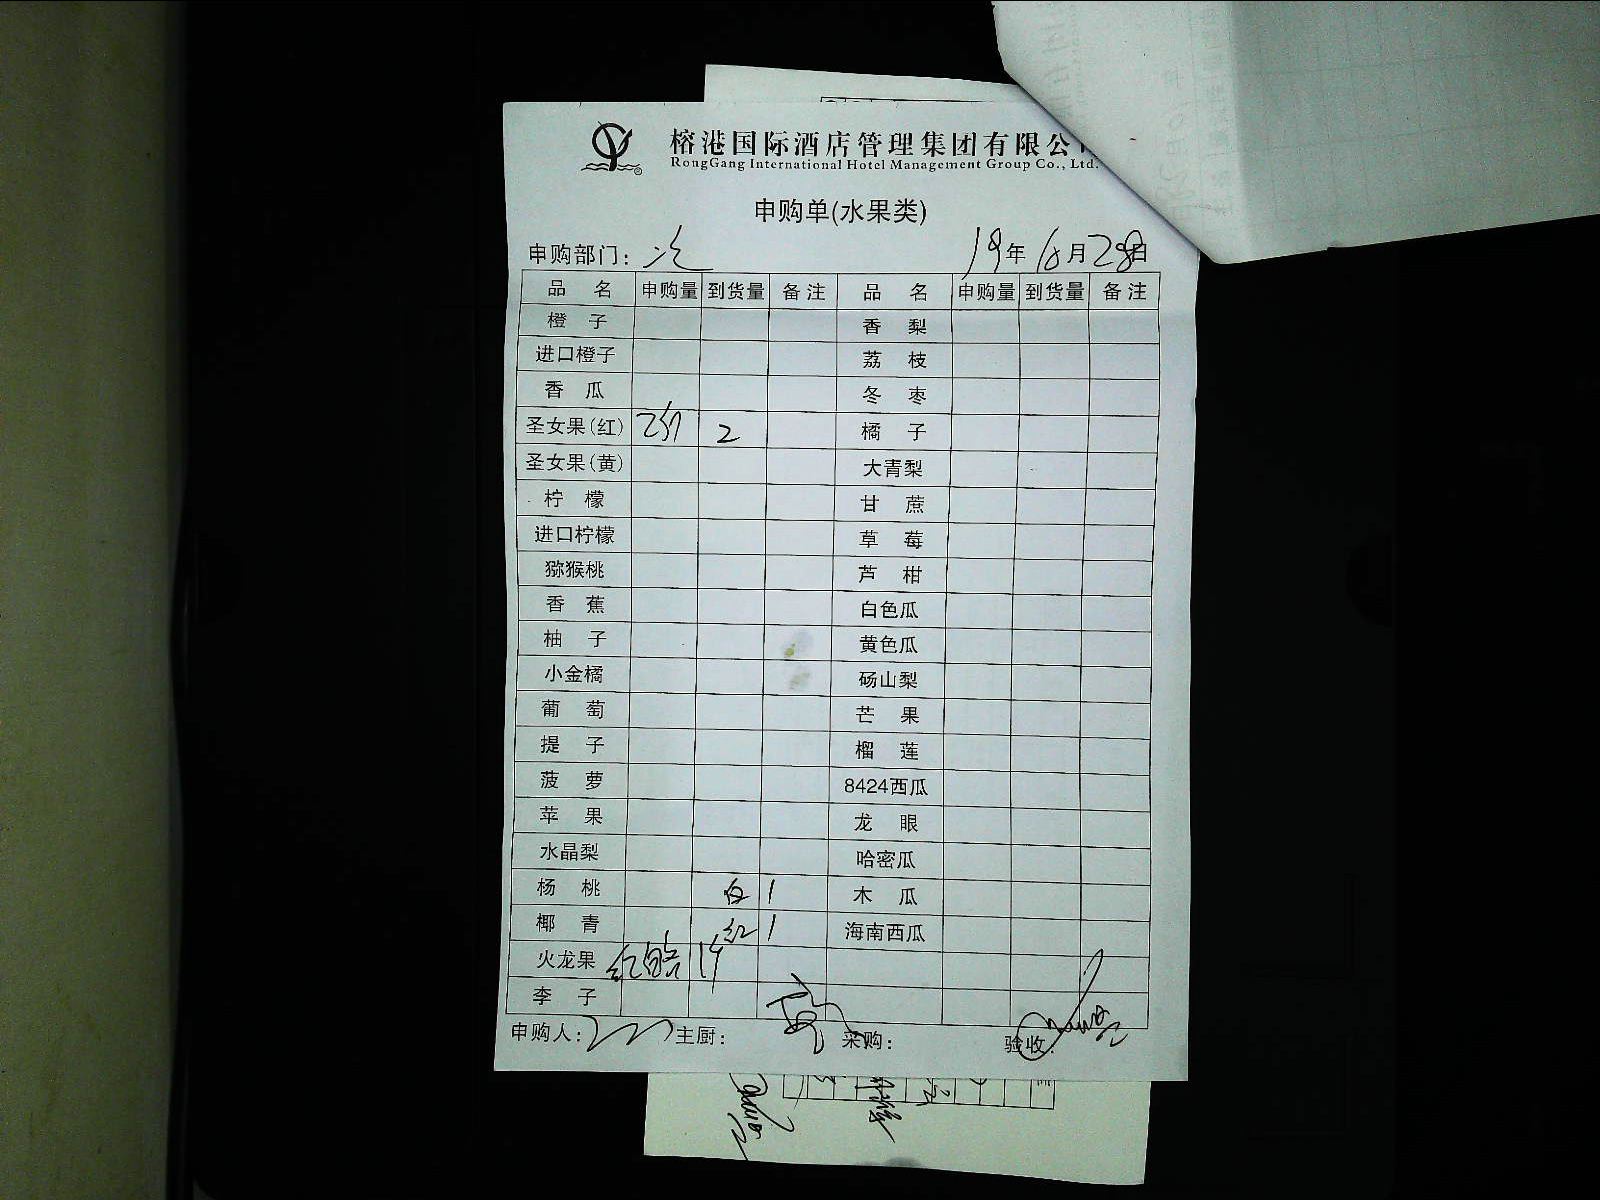 榕港国际酒店管理集团有限公
RongGang International Hotel Management Group Co., Ltd.
申购单(水果类)
申购部门: 19年 6月28日
品 名 申购量 到货量 备注 品 名 申购量 到货量 备注
橙 子 香 梨
进口橙子 荔 枝
香 瓜 冬 枣
圣女果(红) 2 橘 子
圣女果(黄) 大青梨
柠 檬 甘 蔗
进口柠檬 草 莓
猕猴桃 芦 柑
香 蕉 白色瓜
柚 子 黄色瓜
小金橘 砀山梨
葡 萄 芒 果
提 子 榴 莲
菠 萝 8424西瓜
苹 果 龙 眼
水晶梨 哈密瓜
杨 桃 白 1 木 瓜
椰 青 红 1 海南西瓜
火龙果 红
李 子
申购人: 主厨: 采购: 验收: